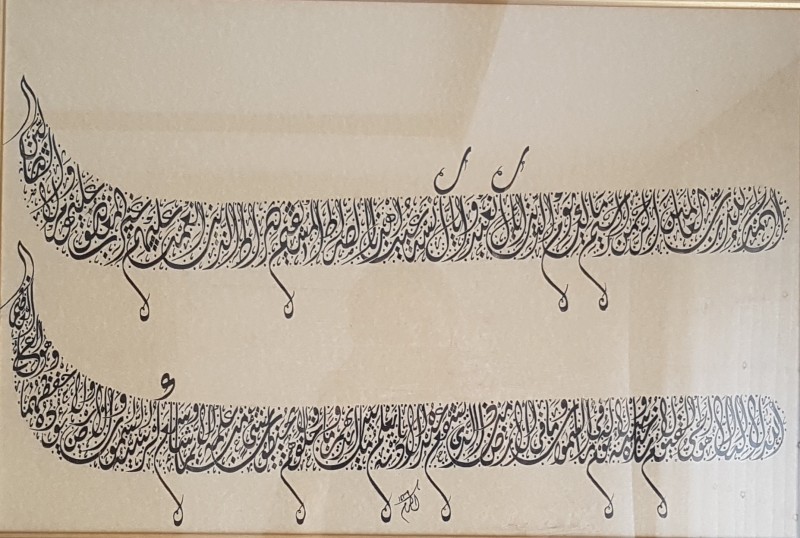 الحمد لله رب العالمين الرحمن الرحيم مالك يوم الدين إياك نعبد وإياك نستعين اهدنا الصراط المستقيم صراط الذين أنعمت عليهم غير المغضوب عليهم ولا الضالين
الله لا إله إلا هو الحي القيوم لا تأخذه سنة ولا نوم له ما في السموات وما في الأرض من ذا الذي يشفع عنده إلا بإذنه يعلم ما بين أيديهم وما خلفهم ولا يحيطون بشيء من علمه إلا بما شاء وسع كرسيه السموات والأرض ولا يؤده حفظهما وهو العلي العظيم